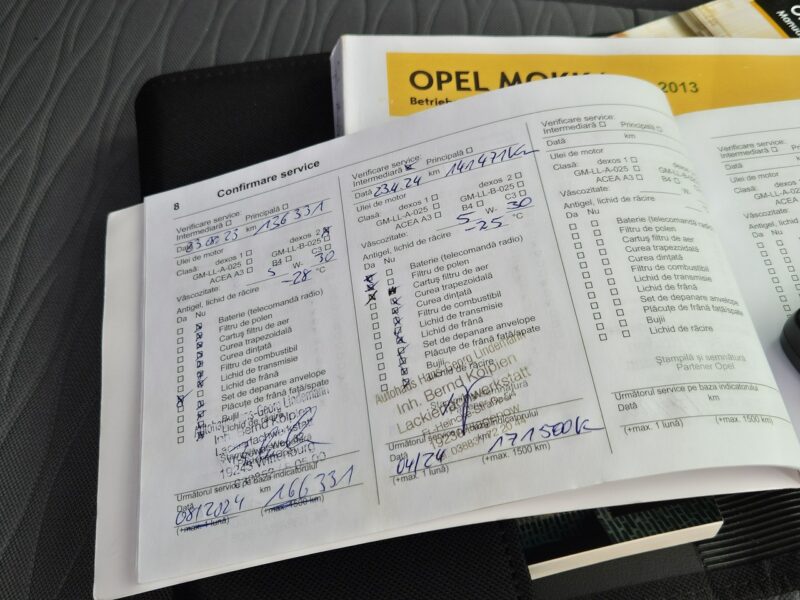 OPEL MOKKA
2013
Betrieb
8
Confirmare service
Verificare service:
Intermediară □ Principală □
Dată 23.08.23 km 136 331
Ulei de motor
Clasă: dexos 1 □ dexos 2
GM-LL-A-025 □ GM-LL-B-025 □
ACEA A3 □ B4 □ C3 □
Văscozitate: 5 W- 30
Antigel, lichid de răcire -28 °C
Da Nu
Baterie (telecomandă radio)
Filtru de polen
Cartuş filtru de aer
Curea trapezoidală
Curea dinţată
Filtru de combustibil
Lichid de transmisie
Lichid de frână
Set de depanare anvelope
Plăcuţe de frână faţă/spate
Bujii
Inh. Bernd Kolpien
Următorul service pe baza indicatorului
Dată 08/2024 km 166 331
(+max. 1 lună) (+max. 1500 km)
Verificare service:
Intermediară Principală □
Dată 23.4.24 km 141 471 Km
Ulei de motor
Clasă: dexos 1 □ dexos 2 □
GM-LL-A-025 □ GM-LL-B-025 □
ACEA A3 □ B4 □ C3 □
Văscozitate: 5 W- 30
Antigel, lichid de răcire -25 °C
Da Nu
Baterie (telecomandă radio)
Filtru de polen
Cartuş filtru de aer
Curea trapezoidală
Curea dinţată
Filtru de combustibil
Lichid de transmisie
Lichid de frână
Set de depanare anvelope
Plăcuţe de frână faţă/spate
Bujii
Lichid de răcire
Autohaus Hans-Georg Lindemann
Inh. Bernd Kolpien
Lackierfachwerkstatt
Următorul service pe baza indicatorului
Dată 04/24 km 171 500 K
(+max. 1 lună) (+max. 1500 km)
Verificare service:
Intermediară □ Principală □
Dată: km
Ulei de motor
Clasă: dexos 1 □ dexos 2 □
GM-LL-A-025 □ GM-LL-B-025 □
ACEA A3 □ B4 □ C3 □
Văscozitate: W-
Antigel, lichid de răcire °C
Da Nu
Baterie (telecomandă radio)
Filtru de polen
Cartuş filtru de aer
Curea trapezoidală
Curea dinţată
Filtru de combustibil
Lichid de transmisie
Lichid de frână
Set de depanare anvelope
Plăcuţe de frână faţă/spate
Bujii
Lichid de răcire
Ştampilă şi semnătură
Partener Opel
Următorul service pe baza indicatorului
Dată km
(+max. 1 lună) (+max. 1500 km)